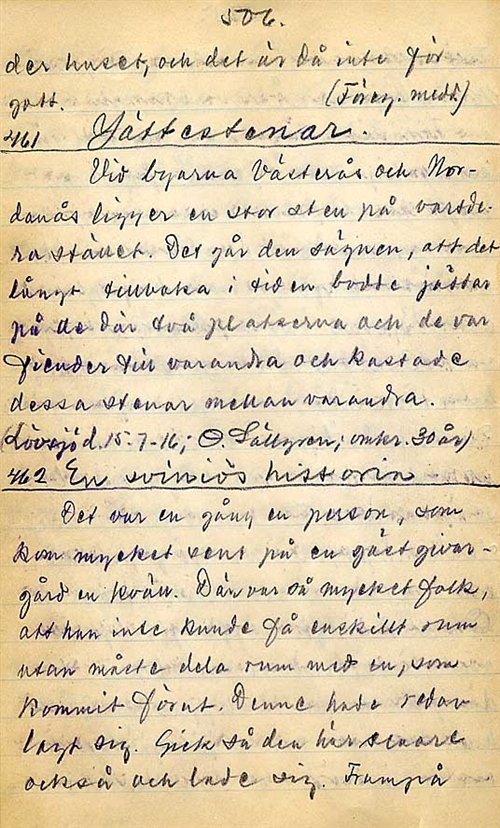 506.
der huset, och det är då inte för
gott. (Föreg. medd.)
461 Jättestenar.
Vid byarna Västerås och Nor-
danås ligger en stor sten på varsde-
ra stället. Det går den sägnen, att det
långt tillbaka i tiden bodde jättar
på de där två platserna och de var
fiender till varandra och kastade
dessa stenar mellan varandra.
(Lövsjö d. 15-7-16; O. Sällgren; omkr. 30 år)
462 En historia
Det var en gång en person, som
kom mycket sent på en gästgivar-
gård en kväll. Där var så mycket folk,
att han inte kunde få enskillt rum
utan måste dela rum med en, som
kommit förut. Denne hade redan
lagt sig. Gick så den här senare
också och lade sig. Frampå